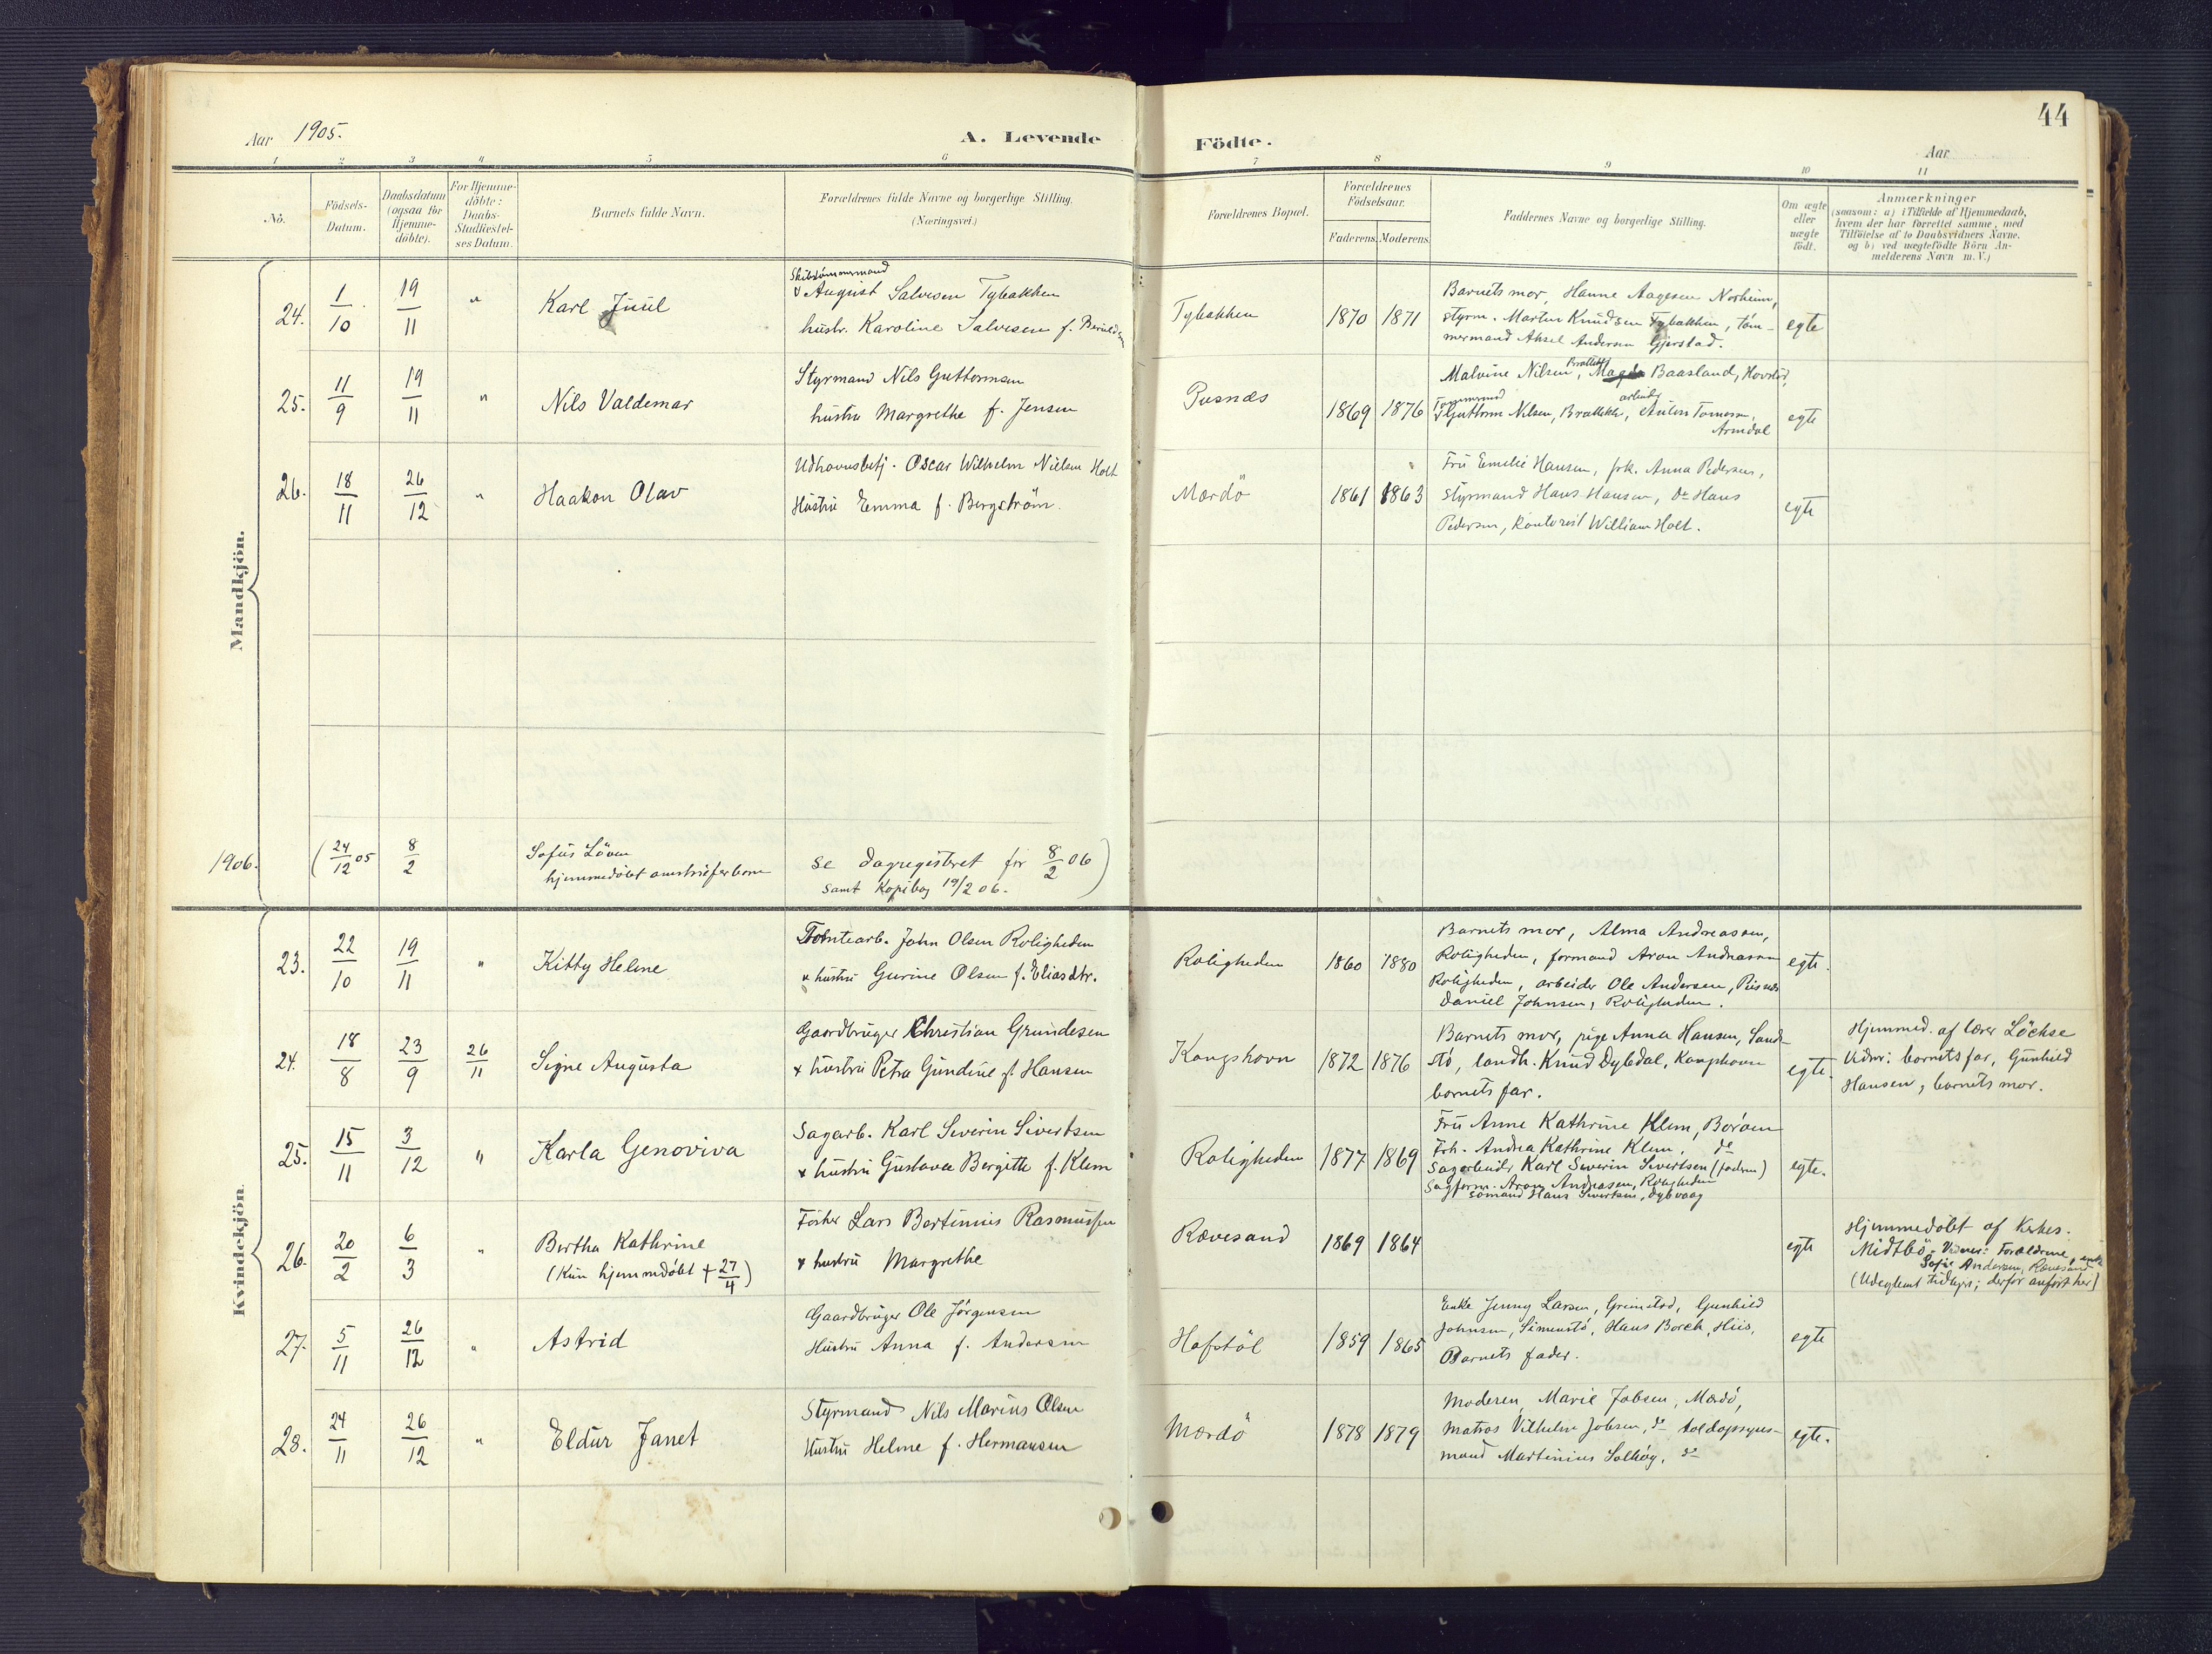 44
Aar 1905.
A. Levende Födte.
Aar
1 2 3 4 5 6 7 8 9 10 11
No.
Födsels-
Datum.
Daabsdatum
(ogsaa for
Hjemme-
döbte).
For Hjemme-
döbte:
Daabs-
Stadfæstel-
ses Datum.
Barnets fulde Navn.
Forældrenes fulde Navne og borgerlige Stilling.
(Næringsvei.)
Forældrenes Bopæl.
Forældrenes
Födselsaar.
Faderens. Moderens.
Faddernes Navne og borgerlige Stilling.
Om ægte
eller
uægte
födt.
Anmærkninger
(saasom: a) i Tilfælde af Hjemmedaab,
hvem der har forrettet samme, med
Tilföielse af to Daabsvidners Navne.
og b) ved uægtefödte Börn An-
melderens Navn m. V.)
Mandkjön.
24. 1/10 19/11 " Karl Juul
Skibstømmermand
August Salvesen Tybakken
hustr. Karoline Salvesen f.
Tybakken 1870 1871
Barnets mor, Hanne Aagesen Norheim,
styrm. Martin Knudsen Tybakken, tøm-
mermand Aksel Andersen Gjerstad.
egte
25. 11/9 19/11 " Nils Valdemar
Styrmand Nils Guttormsen
hustru Margrethe f. Jensen
Pusnæs 1869 1876
Malvine Nilsen, Magda Baasland,
Guttorm Nilsen, Brattekle, arbeider Anton Tomesen,
Arendal
egte
26. 18/11 26/12 " Haakon Olav
Udhavnsbetj. Oscar Wilhelm Nielsen Holt
Hustru Emma f. Bergström.
Mærdö 1861 1863
Fru Emilie Hansen, frk. Anna Pedersen,
Styrmand Hans Hansen, do Hans
Pedersen, kontorist William Holt.
egte
1906.
(24/12 05 8/2
Sofus Löven
hjemmedöbt
se dagregistret for 8/2 06
samt Kopibog 19/2 06.)
Kvindekjön.
23. 22/10 19/11 " Kitty Helene
Tomtearb. John Olsen Roligheden
& hustru Gurine Olsen f. Eliasdtr.
Roligheden 1860 1880
Barnets mor, Alma Andreassen,
Roligheden, formand Aron Andreassen
Roligheden, arbeider Ole Andersen, Pusnæs
Daniel Johnsen, Roligheden.
egte.
24. 18/8 23/9 26/11 Signe Augusta
Gaardbruger Christian Grundesen
& hustru Petra Gundine f. Hansen
Kongshavn 1872 1876
Barnets mor, pige Anna Hansen, Sand-
stø, landh. Knud Dybdal, Kongshavn
barnets far.
egte.
Hjemmed. af lærer Löchse
Vidner: barnets far, Gunhild
Hansen, barnets mor.
25. 15/11 3/12 " Karla Genoviva
Sagarb. Karl Severin Sivertsen
& hustru Gustava Bergitte f. Klem
Roligheden 1877 1869
Fru Anne Kathrine Klem, Borøen
Frk. Andrea Kathrine Klem, do
Sagarbeider Karl Severin Sivertsen (faderen)
Sagform. Aron Andreasen, Roligheden
sømand Hans Sivertsen, Dybvaag
egte.
26. 20/2 6/3 " Bertha Kathrine
(Kun hjemmedöbt + 27/4)
Fisker Lars Bertinius Rasmussen
& hustru Margrethe
Rævesand 1869 1864
egte
Hjemmedöbt af Kirkes.
Midtbö. Vidner: Forældrene, enke
Sofie Andersen, Rævesand
(Udeglemt tidligere; derfor anført her)
27. 5/11 26/12 " Astrid
Gaardbruger Ole Jørgensen
Hustru Anna f. Andersen
Hafstöl 1859 1865
Enke Jenny Larsen, Grimstad, Gunhild
Johnsen, Simenstö, Hans Borch, Hiis,
Barnets fader.
egte
28. 24/11 26/12 " Eldur Janet
Styrmand Nils Marius Olsen
Hustru Helene f. Hermansen
Mærdö 1878 1879
Moderen, Marie Jobsen, Mærdö,
Matros Vilhelm Jobsen, do toldopsyns-
mand Martinius Solhøg, do
egte.